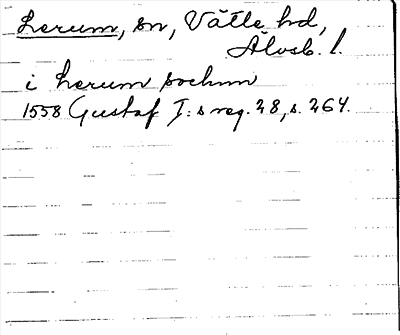 Lerum, sn, Vättle hd,
Älvsb. l.
i Lerum sochnn
1558 Gustaf I:s reg. 28, s. 264.